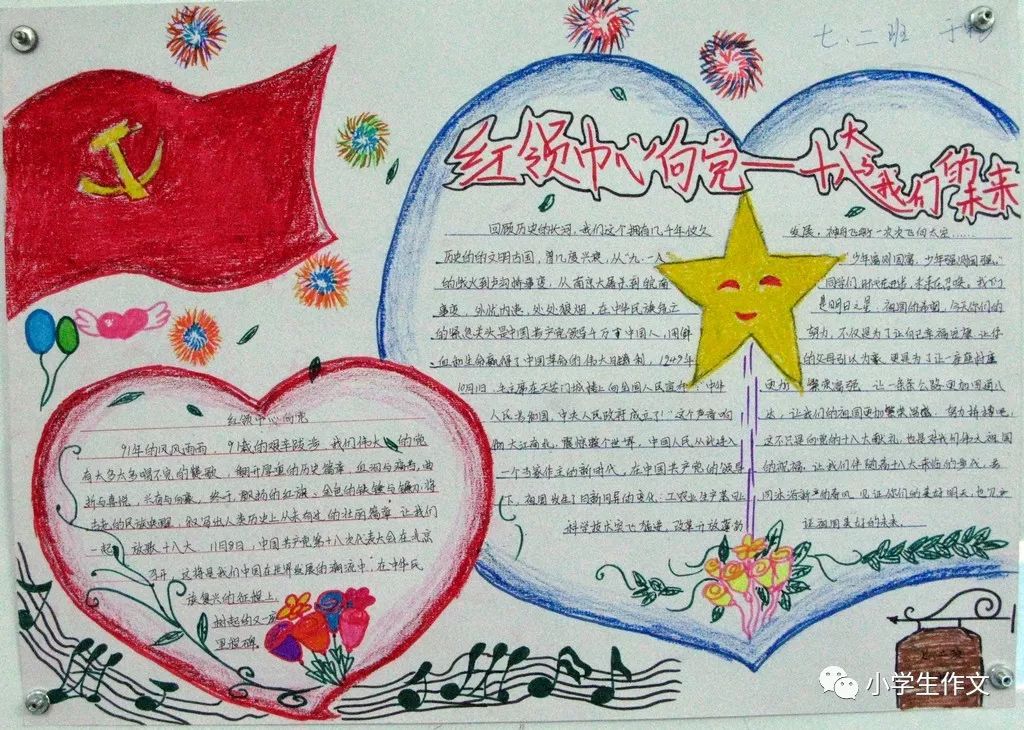 七.二班 于
红领巾心向党——十八大与我们的未来
回顾历史的长河,我们这个拥有几千年悠久
历史的的文明古国,曾几度兴衰,从“九·一八
的战火到卢沟桥事变,从南京大屠杀到皖南
事变,外忧内患,处处狼烟,在中华民族危亡
的紧急关头是中国共产党领导千万
血和生命赢得了中国革命的伟大胜利,1949年
10月1日,毛主席在天安门城楼上向全国人民宣布:“中华
人民共和国,中央人民政府成立了!”这个声音响
彻大江南北,震惊整个世界,中国人民从此进入
一个当家作主的新时代,在中国共产党的领导
下,祖国发生了日新月异的变化:工农业生产
科学技术突飞猛进,改革开放蓬勃
发展,神舟飞船一次次飞向太空……
“少年富则国富,少年强则国强。”
同学们,时代在进步,未来在召唤,我们
是明日之星,祖国的希望,今天你们的
努力,不仅是为了让自己幸福
的父母引以为豪,更是为了让
更加繁荣富强,让一条条公路更加四通八
达,让我们的祖国更加繁荣富强,努力拼搏吧,
这不只是向党的十八大献礼,也是对我们伟大祖国
的祝福,让我们伴随着十八大
的春风,见证你们的美好明天,也见
证祖国美好的未来。
红领巾心向党
91年的风风雨雨 91载的艰辛跋涉 我们伟大的党
有太多太多唱不完的赞歌,翻开厚重的历史篇章,血泪与痛苦,曲
折与喜悦,兴奋与向往,终于,鲜扬的红旗、金色的铁锤与镰刀,将
古老的民族唤醒,叙写出人类历史上从未有过的壮丽篇章,让我们
一起 放歌十八大 11月8日,中国共产党第十八次代表大会在北京
召开,这将是我们中国在世界发展的潮流中,在中华民
族复兴的征程上,
树起的又一座
里程碑。
小学生作文